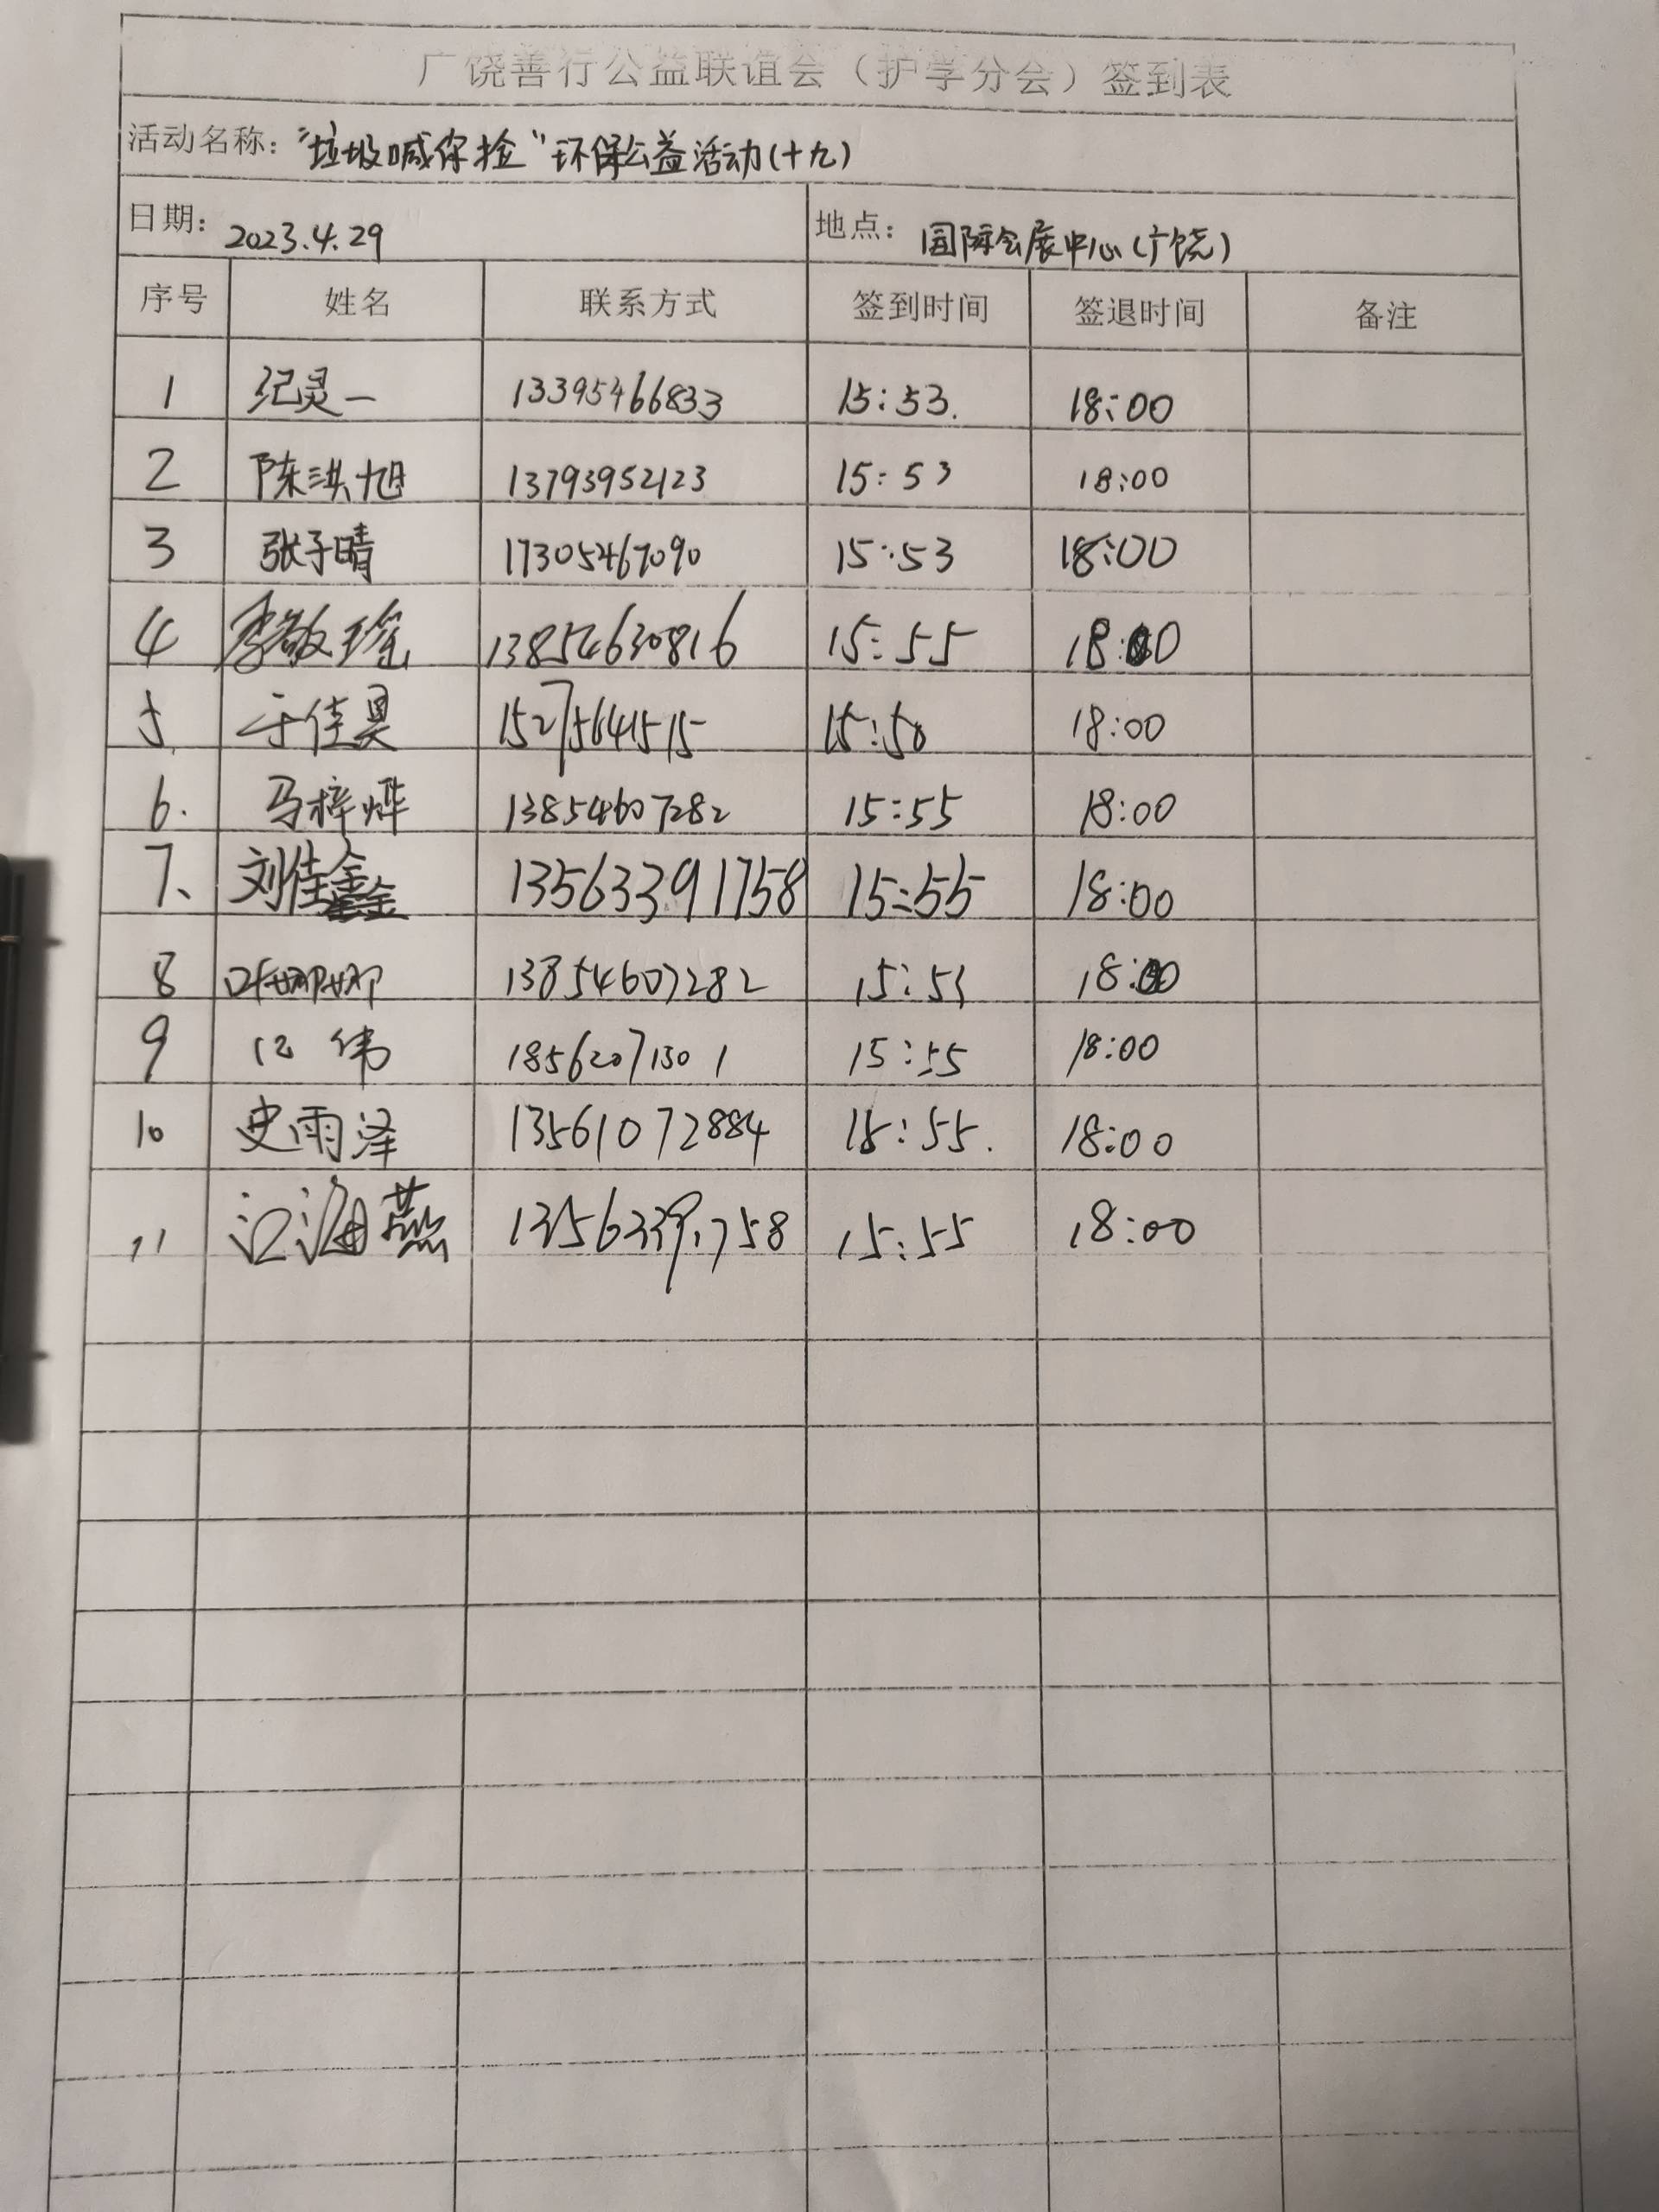 广饶善行公益联谊会（护学分会）签到表
活动名称：“垃圾喊你捡”环保公益活动(十九)
日期：2023.4.29 地点：国际会展中心(广饶)
序号 姓名 联系方式 签到时间 签退时间 备注
1 纪灵一 13395466833 15:53. 18:00
2 陈洪旭 13793952123 15:53 18:00
3 张子晴 17305467090 15:53 18:00
4 李敬瑶 13854630816 15:55 18:00
5 于佳昊 15275641515 15:50 18:00
6. 马梓烨 13854607282 15:55 18:00
7、 刘佳鑫 13563391758 15:55 18:00
8 叶娜娜 13854607282 15:55 18:00
9 纪伟 18562071301 15:55 18:00
10 史雨泽 13561072884 15:55. 18:00
11 江海燕 13563391758 15:55 18:00